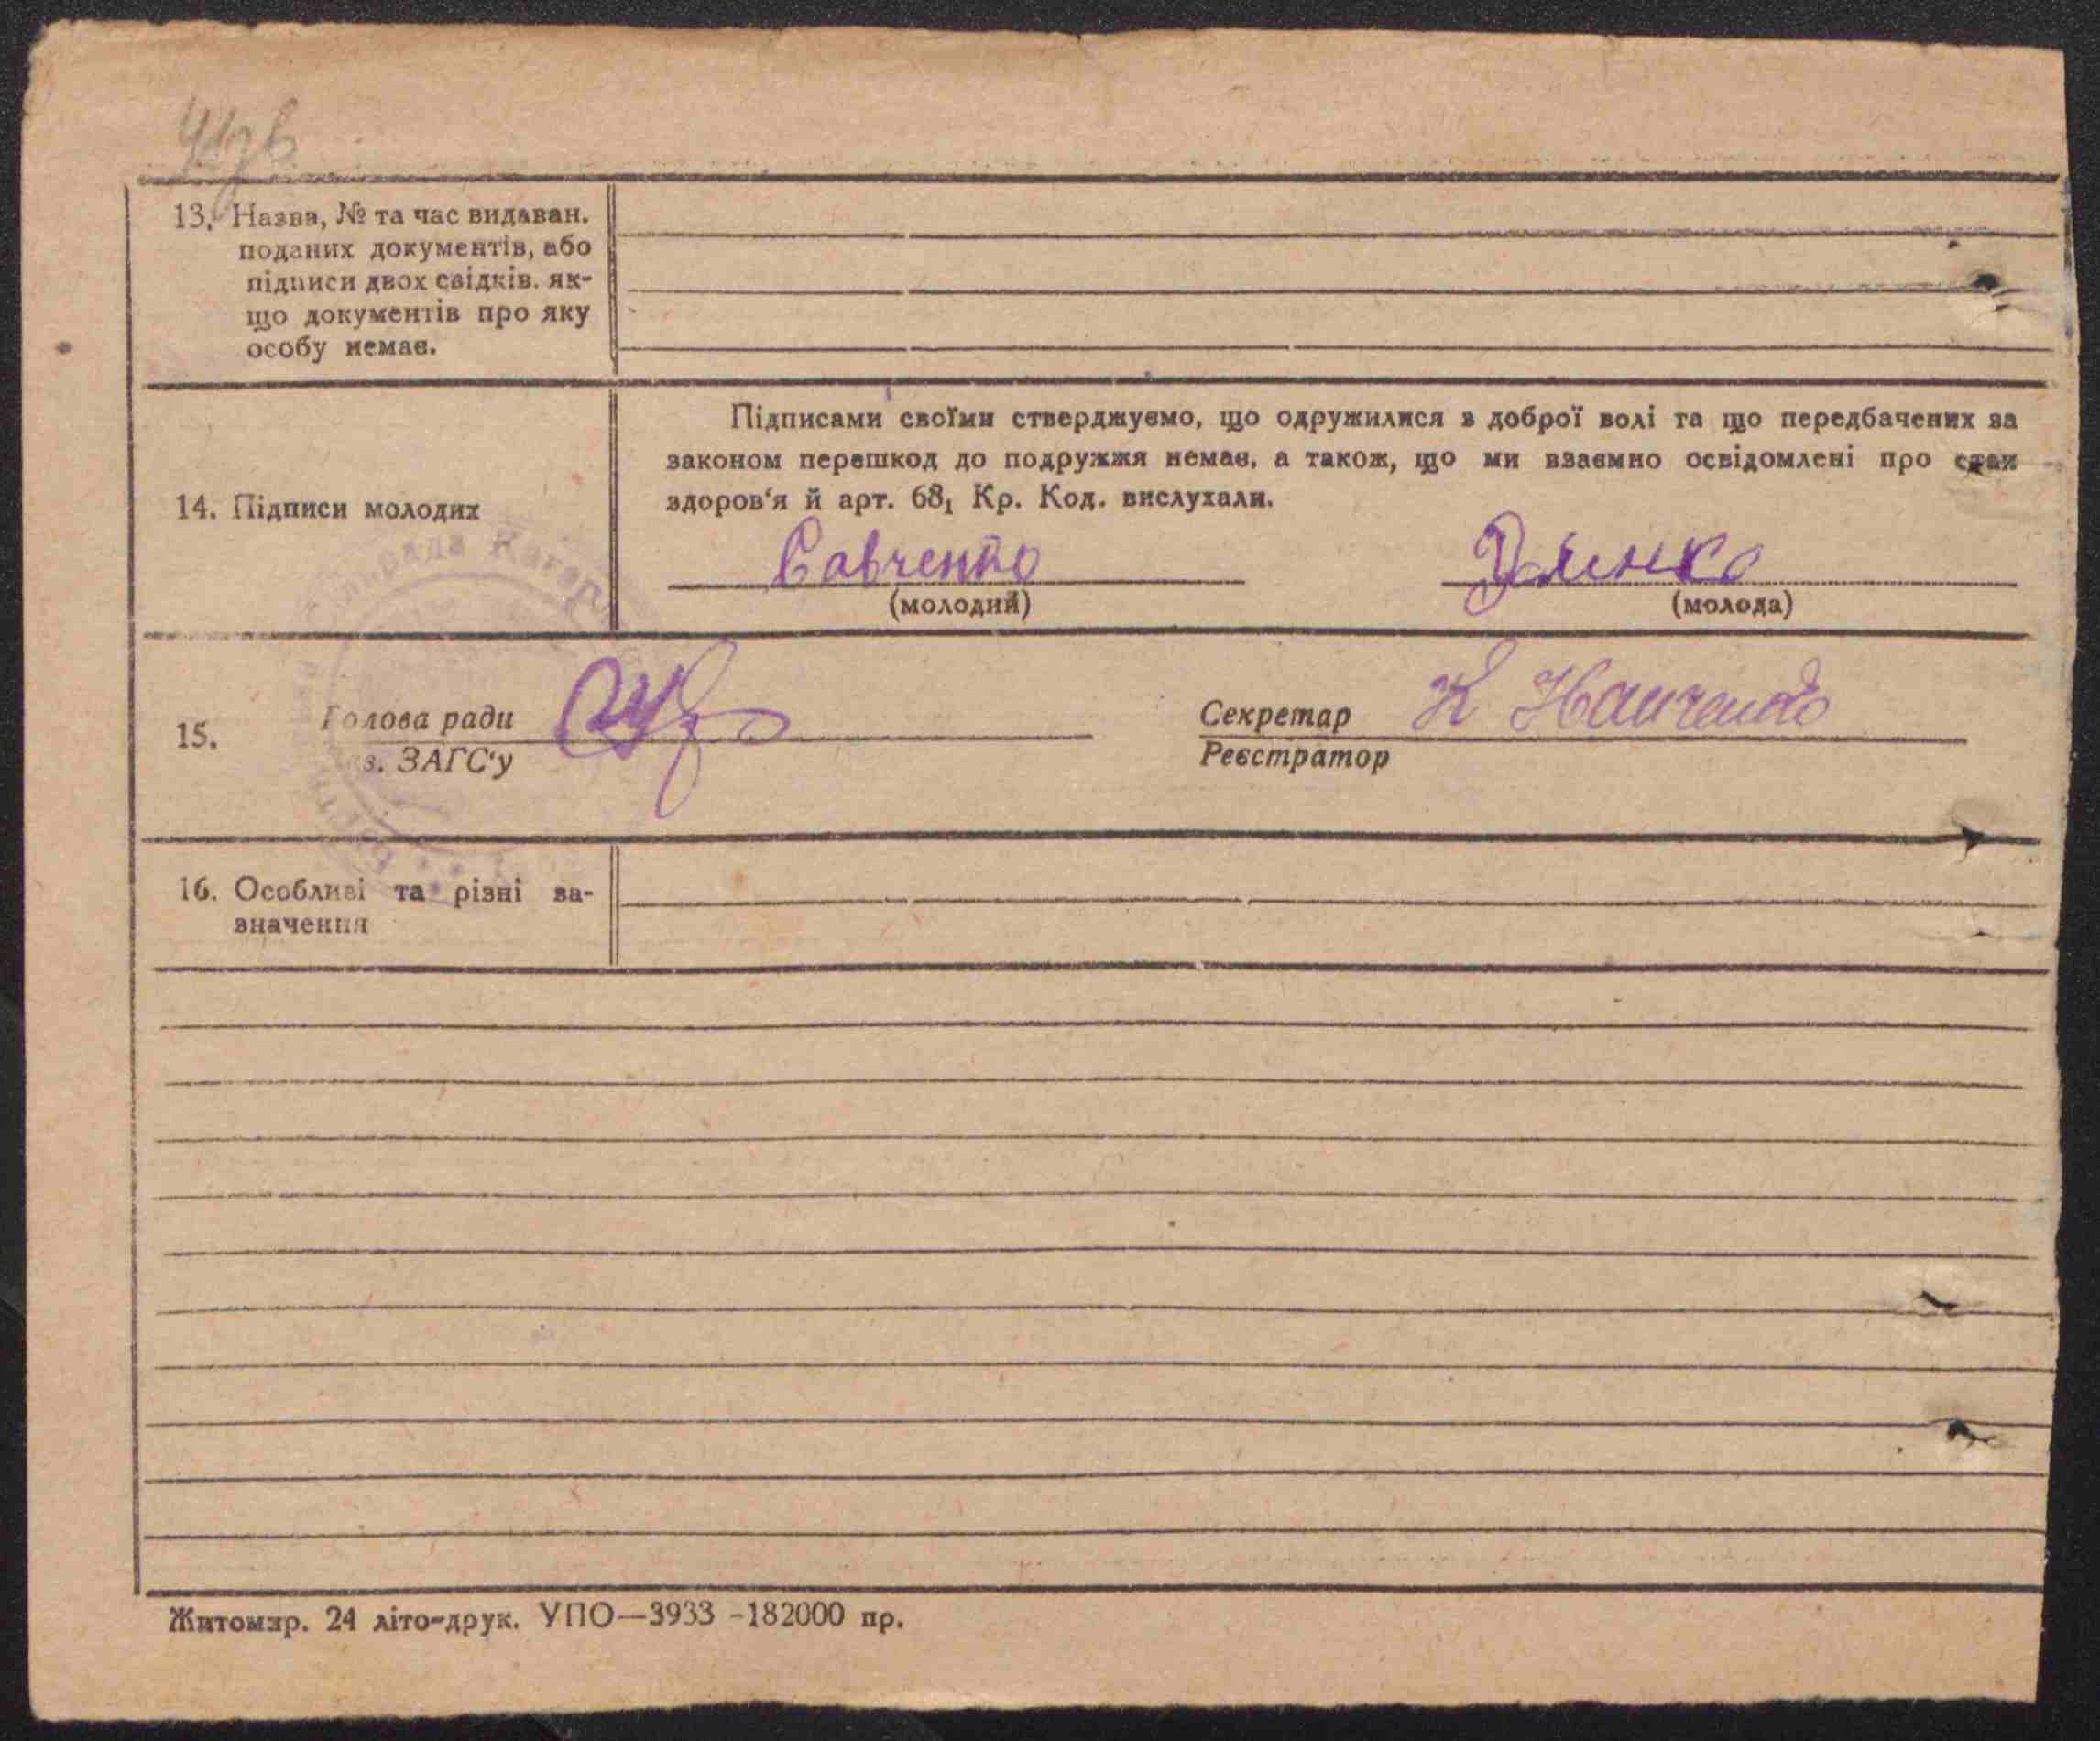 13. Назва, № та час видаван.
поданих документів, або
підписи двох свідків. як-
що документів про яку
особу немає.
Підписами своїми стверджуємо, що одружилися з доброї волі та що передбачених за
законом перешкод до подружжя немає, а також, що ми взаємно освідомлені про стан
здоров'я й арт. 68₁ Кр. Код. вислухали.
14. Підписи молодих
Савченко
(молодий) (молода)
15. Голова ради Секретар К
з. ЗАГС'у Реєстратор
16. Особливі та різні за-
значення
Житомир. 24 літо-друк. УПО—3933 -182000 пр.